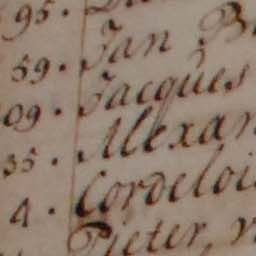 95.
59. Jan B
09. Jacques
35. Alexan
4. Cordelois
Pieter v